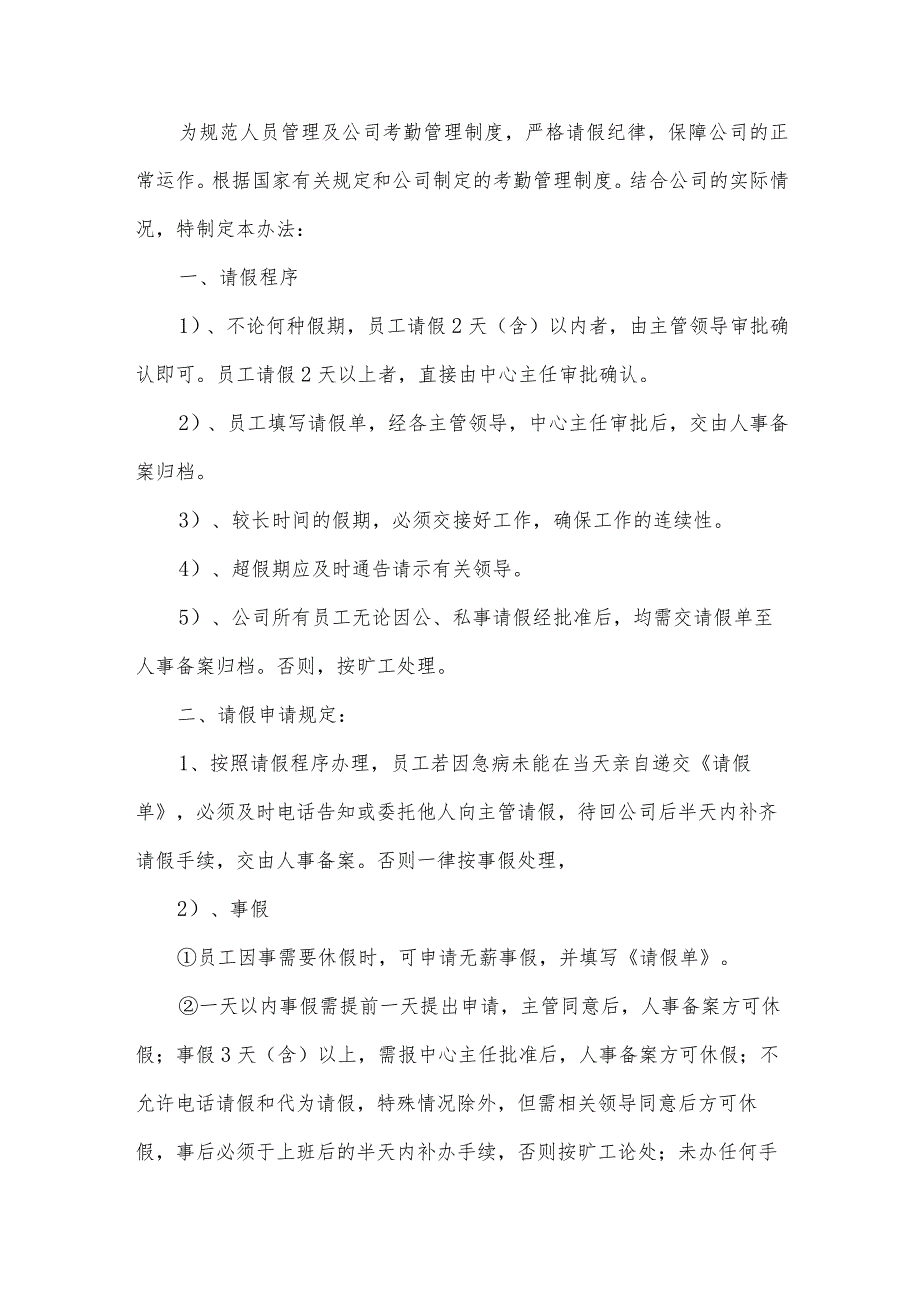 为规范人员管理及公司考勤管理制度，严格请假纪律，保障公司的正
常运作。根据国家有关规定和公司制定的考勤管理制度。结合公司的实际情
况，特制定本办法：
一、请假程序
1）、不论何种假期，员工请假2天（含）以内者，由主管领导审批确
认即可。员工请假2天以上者，直接由中心主任审批确认。
2）、员工填写请假单，经各主管领导，中心主任审批后，交由人事备
案归档。
3）、较长时间的假期，必须交接好工作，确保工作的连续性。
4）、超假期应及时通告请示有关领导。
5）、公司所有员工无论因公、私事请假经批准后，均需交请假单至
人事备案归档。否则，按旷工处理。
二、请假申请规定：
1、按照请假程序办理，员工若因急病未能在当天亲自递交《请假
单》，必须及时电话告知或委托他人向主管请假，待回公司后半天内补齐
请假手续，交由人事备案。否则一律按事假处理，
2）、事假
①员工因事需要休假时，可申请无薪事假，并填写《请假单》。
②一天以内事假需提前一天提出申请，主管同意后，人事备案方可休
假；事假3天（含）以上，需报中心主任批准后，人事备案方可休假；不
允许电话请假和代为请假，特殊情况除外，但需相关领导同意后方可休
假，事后必须于上班后的半天内补办手续，否则按旷工论处；未办任何手